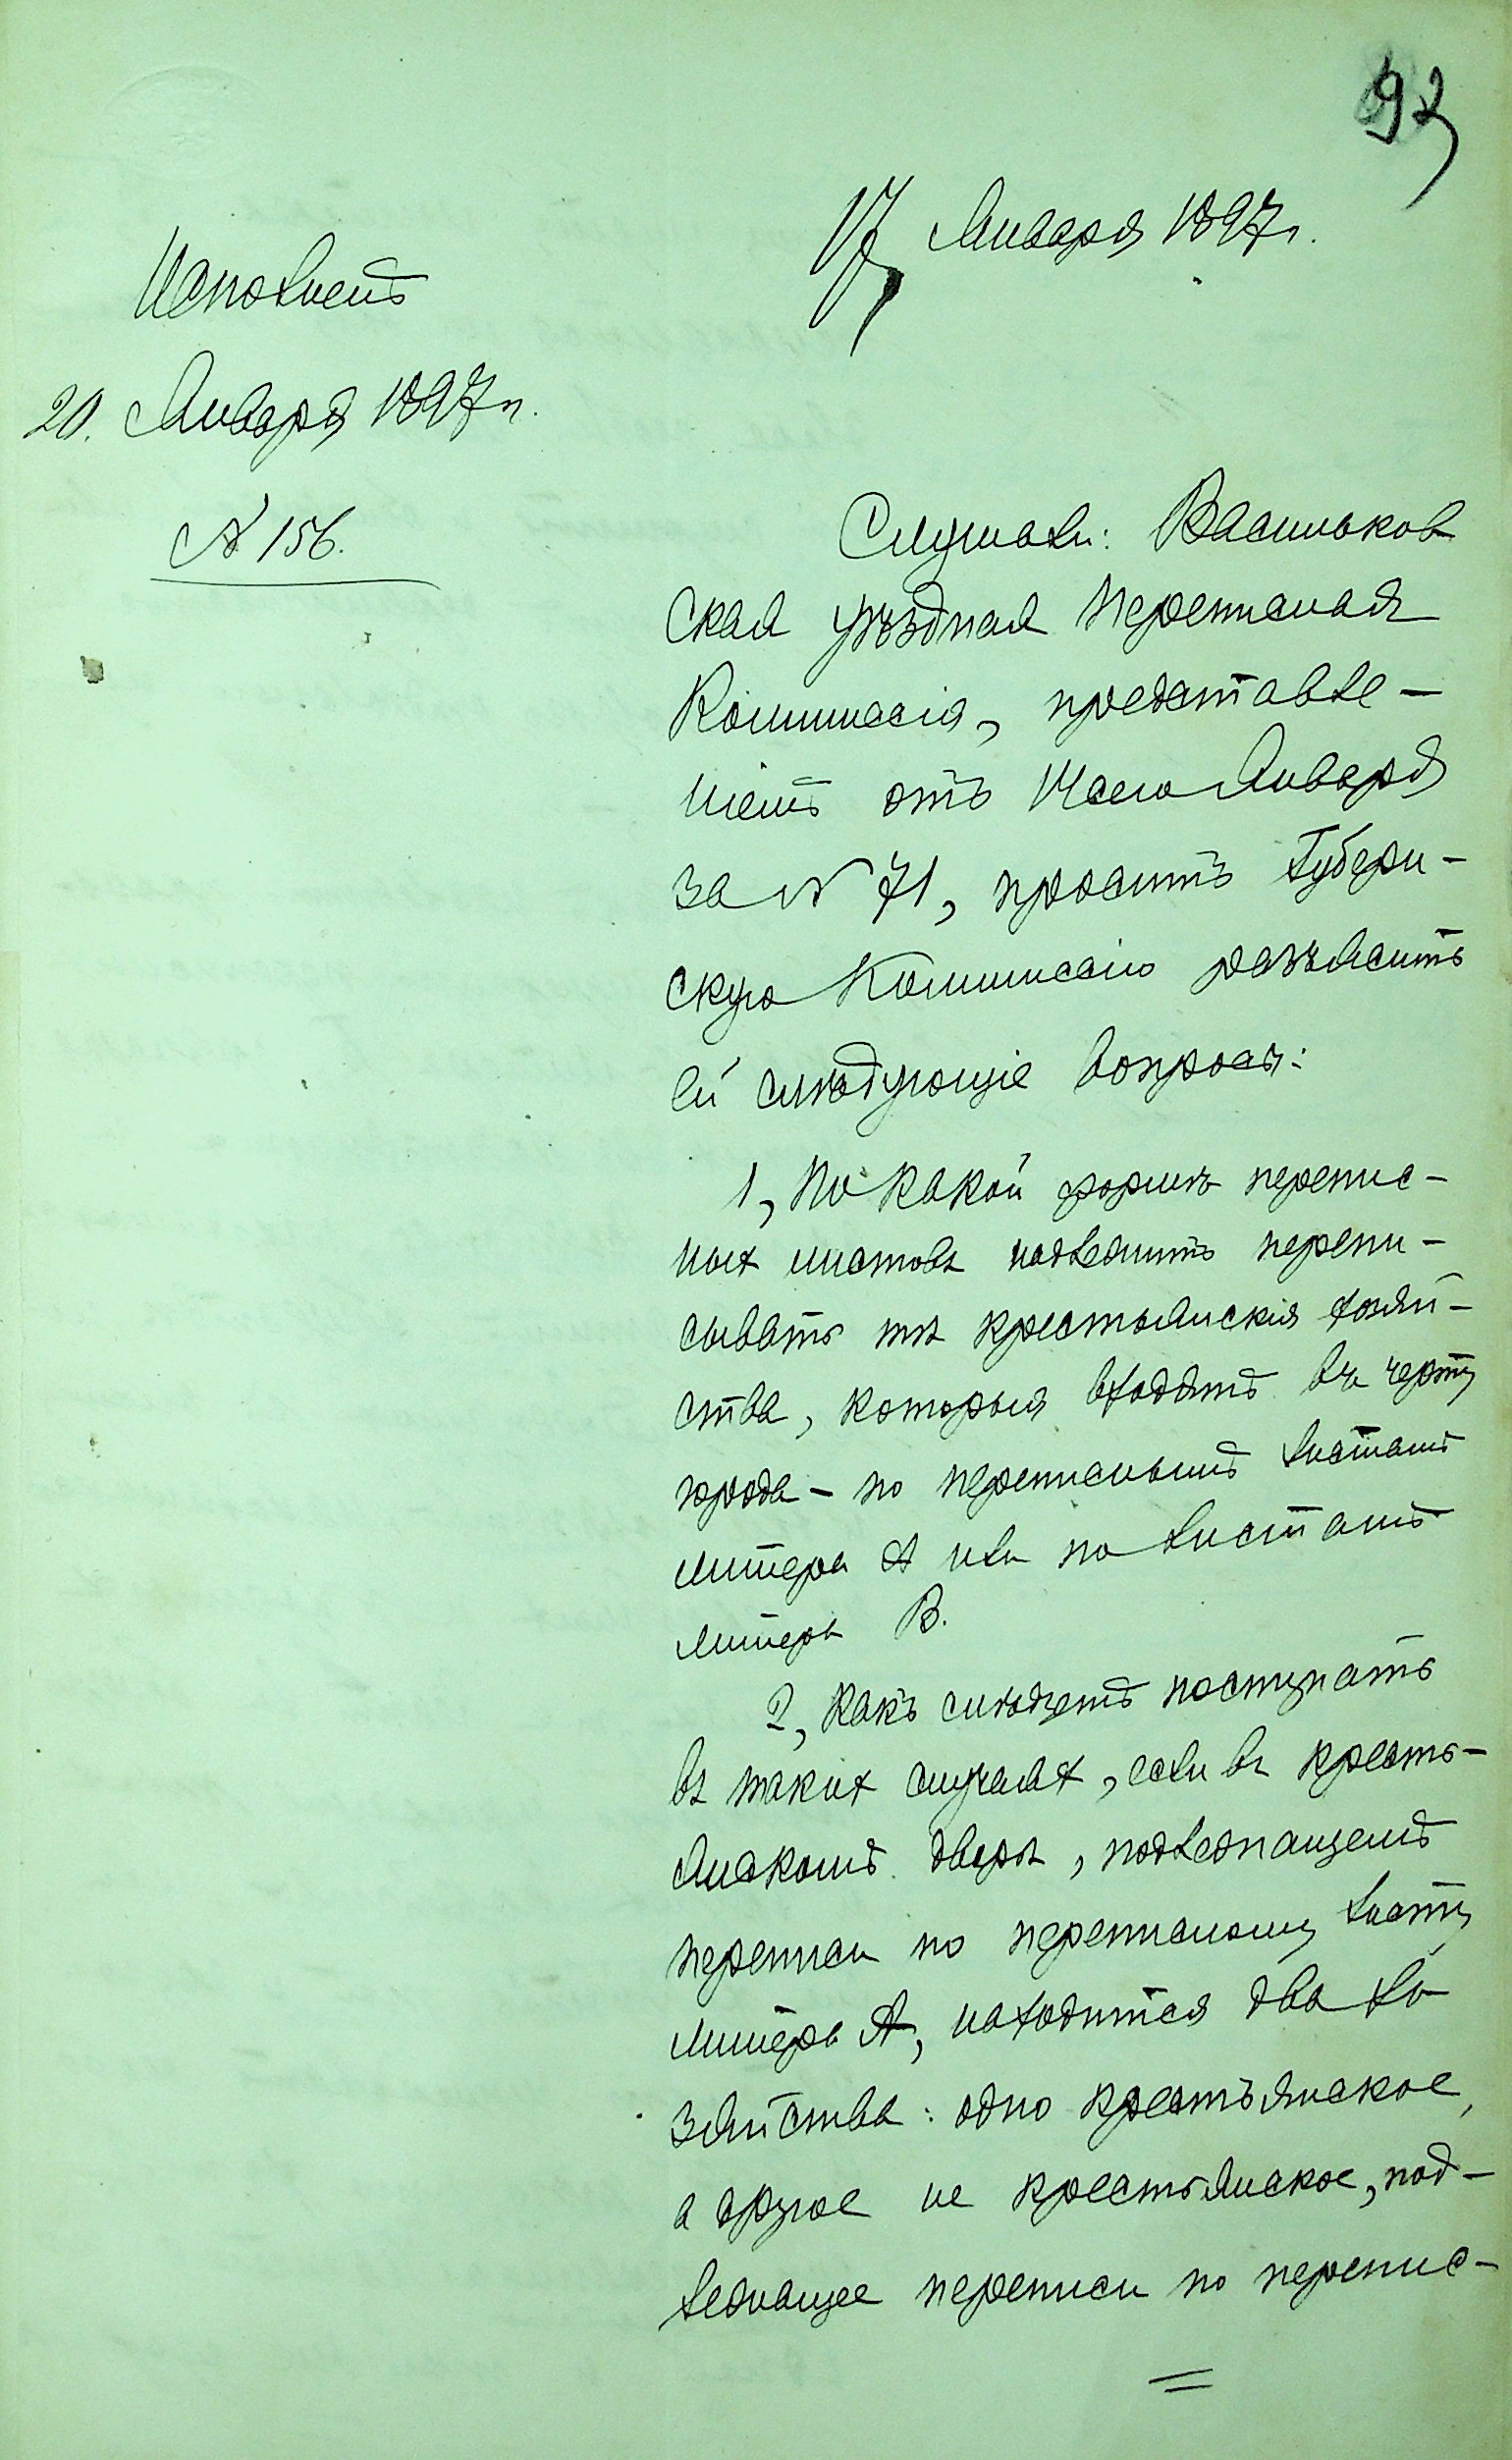 92
17 Января 1897 г.
Исполнено
20. Января 1897 г.
№ 156.
Слушали: Васильков
ская уѣздная переписная
Коммиссія, представле-
ніемъ отъ 14сего Января
за № 71, проситъ Губерн-
скую Коммиссію разъяснить
ей слѣдующіе вопросы:
1, По какой формѣ перепис-
ных листовъ надлежитъ перепи-
сывать тѣ крестьянскія хозяй-
ства, которыя входятъ въ черту
города - по переписнымъ листамъ
литера А или по листамъ
литера В.
2, Какъ слѣдуетъ поступать
въ таких случаях, если въ кресть-
янскомъ дворѣ, подлежащемъ
переписи по переписному листу
литера А, находится два хо
зяйства: одно крестьянское,
а другое не крестьянское, под-
лежащее переписи по перепис-